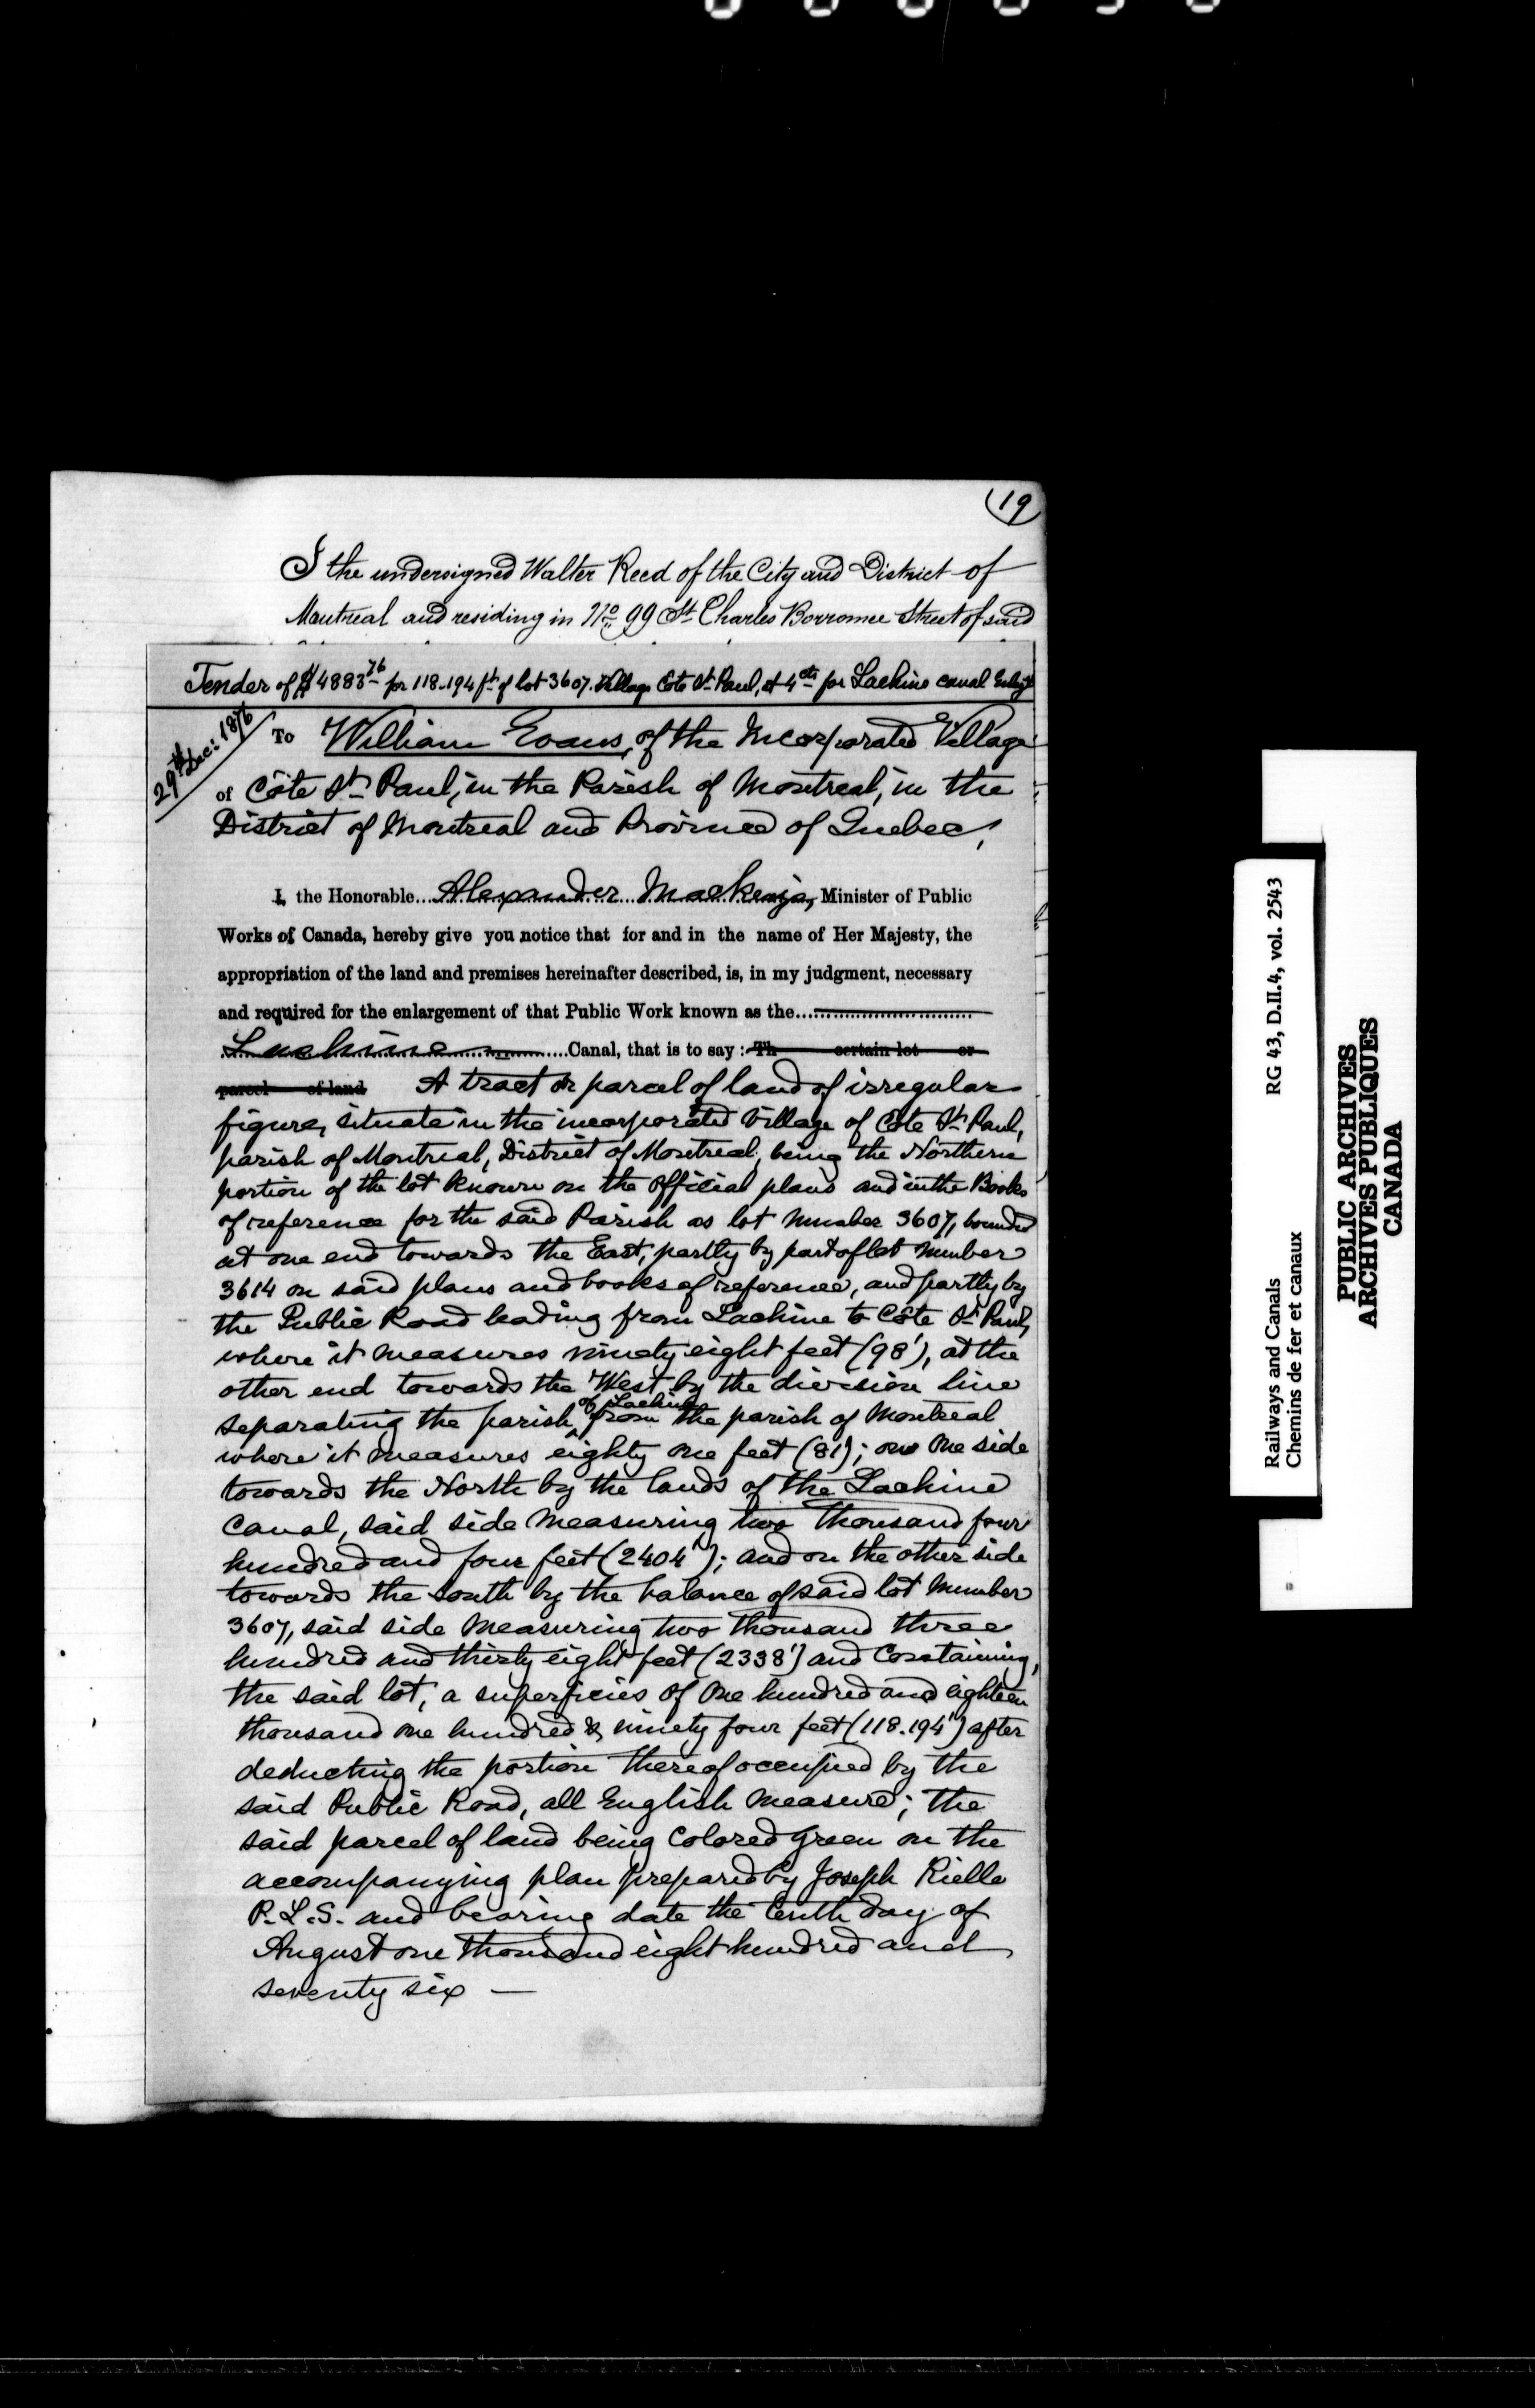 (19
I the undersigned Walter Reed of the City and District of
Montreal and residing in No 99 St Charles Borromee Street of said
Tender of $4883 76 for 118.194 ft of lot 3607. Village Cote St Paul, at 4 cts for Lachine canal Enlgt
29th Dec: 1876
To William Evans, of the Incorporated Village
of Côte St Paul, in the Parish of Montreal, in the
District of Montreal and Province of Quebec,
I, the Honorable... Alexander Mackenzie, Minister of Public
Works of Canada, hereby give you notice that for and in the name of Her Majesty, the
appropriation of the land and premises hereinafter described, is, in my judgment, necessary
and required for the enlargement of that Public Work known as the...
Lachine ...Canal, that is to say: Th certain lot or
parcel of land A tract or parcel of land of irregular
figure, situate in the incorporated Village of Côte St Paul,
parish of Montreal, District of Montreal, being the Northern
portion of the lot known on the official plans and in the Books
of reference for the said Parish as lot number 3607, bounded
at one end towards the East, partly by part of lot number
3614 on said plans and books of reference, and partly by
the Public Road leading from Lachine to Côte St Paul,
where it measures ninety eight feet (98'), at the
other end towards the West by the division line
separating the parish of Lachine from the parish of Montreal
where it measures eighty one feet (81); on one side
towards the North by the lands of the Lachine
Canal, said side measuring two thousand four
hundred and four feet (2404'); and on the other side
towards the South by the balance of said lot number
3607, said side measuring two thousand three
hundred and thirty eight feet (2338') and containing,
the said lot, a superficies of one hundred and eighteen
thousand one hundred & ninety four feet (118.194') after
deducting the portion thereof occupied by the
said Public Road, all English measure; the
said parcel of land being colored green on the
accompanying plan prepared by Joseph Rielle
P.L.S. and bearing date the tenth day of
August one thousand eight hundred and
seventy six —
Railways and Canals RG 43, D.II.4, vol. 2543
Chemins de fer et canaux
PUBLIC ARCHIVES
ARCHIVES PUBLIQUES
CANADA